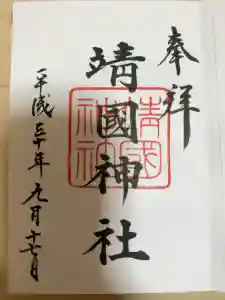 奉拝
靖國神社
靖國神社
平成三十年九月十七日